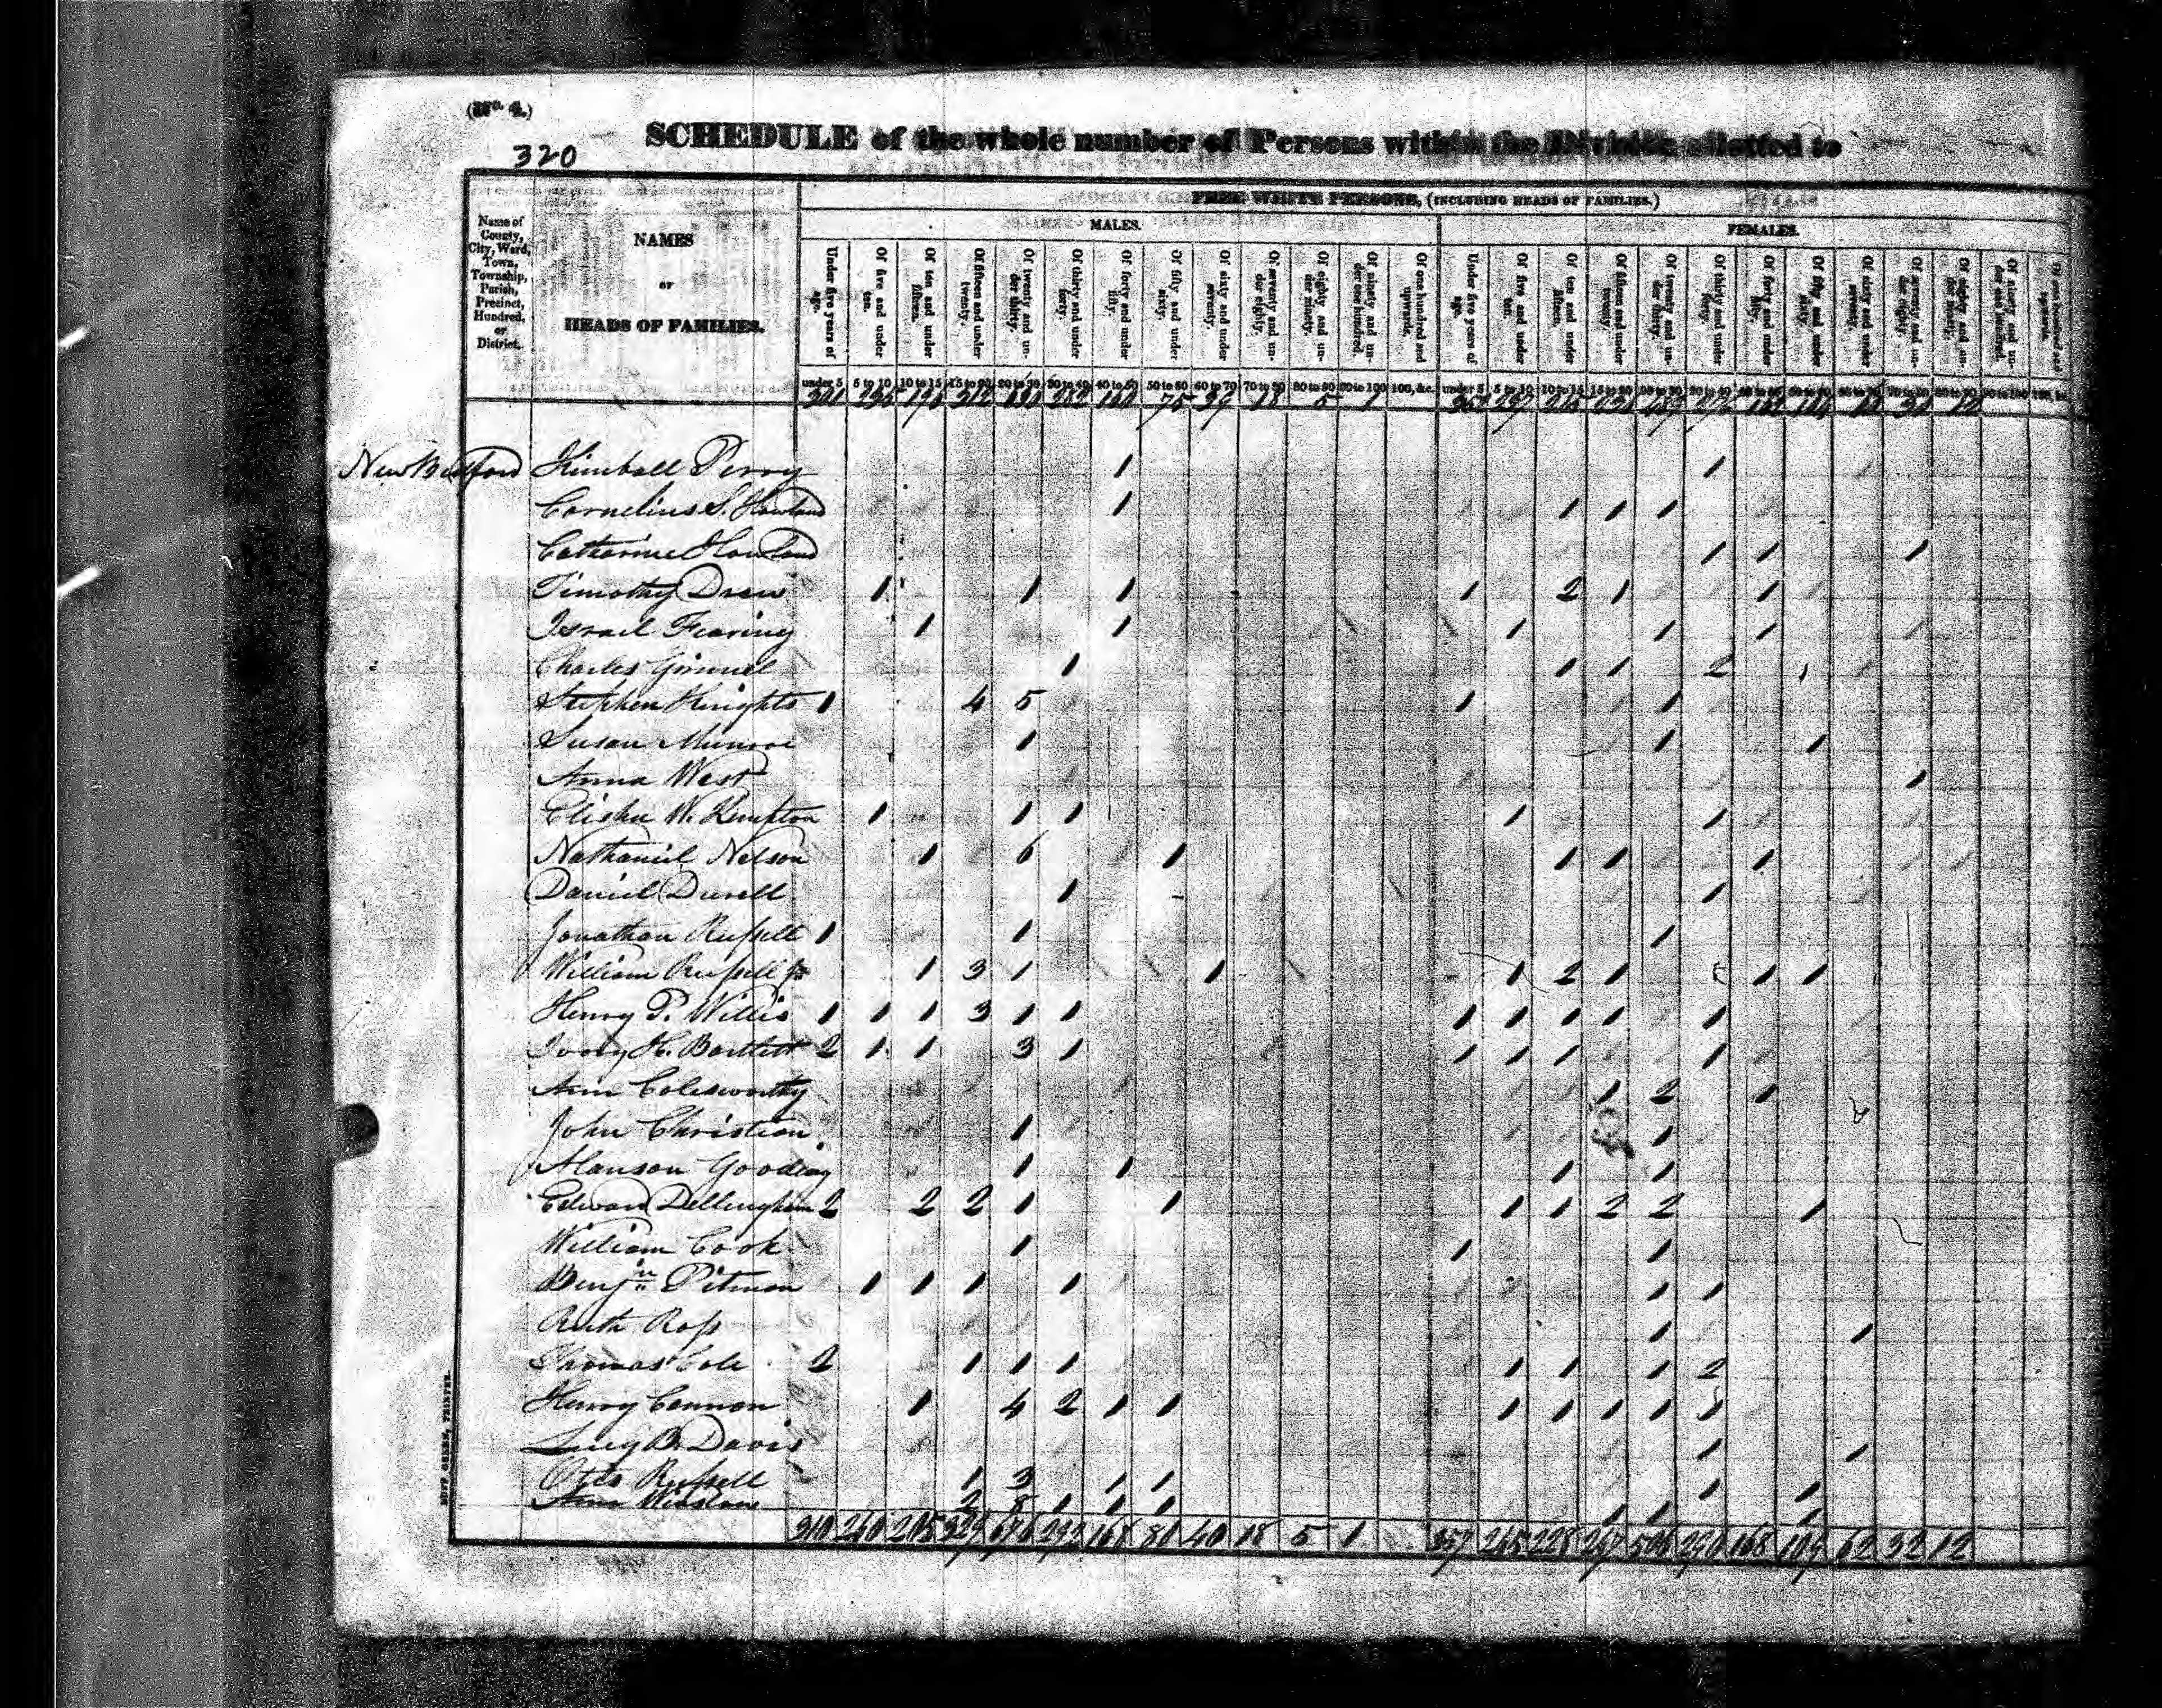 (No. 4.)
SCHEDULE of the whole number of Persons within the Division allotted to
320
FREE WHITE PERSONS, (INCLUDING HEADS OF FAMILIES.)
MALES. FEMALES.
Name of County, City, Ward, Town, Township, Parish, Precinct, Hundred, or District.
NAMES OF HEADS OF FAMILIES.
Under five years of age. Of five and under ten. Of ten and under fifteen. Of fifteen and under twenty. Of twenty and under thirty. Of thirty and under forty. Of forty and under fifty. Of fifty and under sixty. Of sixty and under seventy. Of seventy and under eighty. Of eighty and under ninety. Of ninety and under one hundred. Of one hundred and upwards. Under five years of age. Of five and under ten. Of ten and under fifteen. Of fifteen and under twenty. Of twenty and under thirty. Of thirty and under forty. Of forty and under fifty. Of fifty and under sixty. Of sixty and under seventy. Of seventy and under eighty. Of eighty and under ninety. Of ninety and under one hundred.
under 5 5 to 10 10 to 15 15 to 20 20 to 30 30 to 40 40 to 50 50 to 60 60 to 70 70 to 80 80 to 90 90 to 100 100, &c. under 5 5 to 10 10 to 15 15 to 20 20 to 30 30 to 40 40 to 50 50 to 60 60 to 70 70 to 80 80 to 90 90 to 100 100, &c.
312 282 160 75 37 18 5 1
New Bedford Kimball Perry 1 1
Cornelius S. Howland 1 1 1 1
Catharine Howland 1 1 1
Timothy Drew 1 1 1 1 2 1 1
Israel Fearing 1 1 1 1 1
Charles Grinnel 1 1 1 2 1
Stephen Knights 1 4 5 1 1
Susan Munroe 1 1 1
Anna West 1
Elisha W. Kempton 1 1 1 1 1
Nathaniel Nelson 1 6 1 1 1 1
Daniel Durell 1 1
Jonathan Russell 1 1 1
William Russell Jr 1 3 1 1 1 2 1 1 1
Henry P. Willis 1 1 1 3 1 1 1 1 1 1 1
Ivory H. Bartlett 2 1 1 3 1 1 1 1 1
Ann Colesworthy 1 2 1
John Christian 1 1
Alanson Gooding 1 1 1 1
Edward Dellingham 2 2 2 1 1 1 1 2 2 1
William Cook 1 1 1
Benjn Pitman 1 1 1 1 1 1
Ruth Ross 1 1
Thomas Cole 2 1 1 1 1 1 1 2
Henry Cannon 1 4 2 1 1 1 1 1 1 1
Lucy B. Davis 1 1
Otis Russell 1 3 1 1 1 1
Ann Winslow 2 8 1 1 1 1 1 1
310 240 205 329 676 292 168 80 40 18 5 1 357 265 228 267 506 290 168 109 62 32 12
DUFF GREEN, PRINTER.